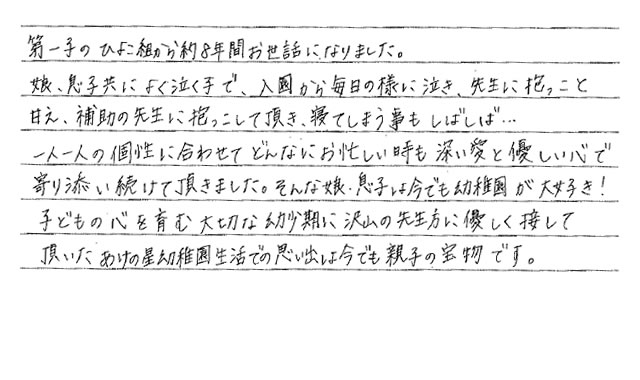 第一子のひよこ組から約8年間お世話になりました。
娘、息子共によく泣く子で、入園から毎日の様に泣き、先生に抱っこと
甘え、補助の先生に抱っこして頂き、寝てしまう事もしばしば…
一人一人の個性に合わせてどんなにお忙しい時も深い愛と優しい心で
寄り添い続けて頂きました。そんな娘・息子は今でも幼稚園が大好き!
子どもの心を育む大切な幼少期に沢山の先生方に優しく接して
頂いたあけの星幼稚園生活での思い出は今でも親子の宝物です。